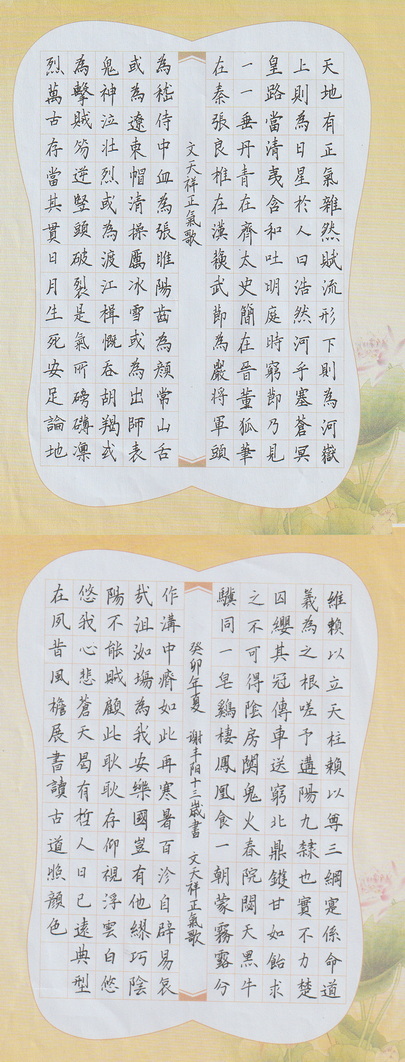 天地有正氣雜然賦流形下則為河嶽
上則為日星於人曰浩然沛乎塞蒼冥
皇路當清夷含和吐明庭時窮節乃見
一一垂丹青在齊太史簡在晉董狐筆
在秦張良椎在漢蘇武節為嚴將軍頭
文天祥正氣歌
為嵇侍中血為張睢陽齒為顏常山舌
或為遼東帽清操厲冰雪或為出師表
鬼神泣壯烈或為渡江楫慨吞胡羯或
為擊賊笏逆豎頭破裂是氣所磅礴凜
烈萬古存當其貫日月生死安足論地
維賴以立天柱賴以尊三綱寔係命道
義為之根嗟予遘陽九隸也實不力楚
囚纓其冠傳車送窮北鼎鑊甘如飴求
之不可得陰房闃鬼火春院閟天黑牛
驥同一皂鷄棲鳳凰食一朝蒙霧露分
癸卯年夏 謝丰阳十三歲書 文天祥正氣歌
作溝中瘠如此再寒暑百沴自辟易哀
哉沮洳場為我安樂國豈有他繆巧陰
陽不能賊顧此耿耿存仰視浮雲白悠
悠我心悲蒼天曷有哲人日已遠典型
在夙昔風檐展書讀古道照顏色